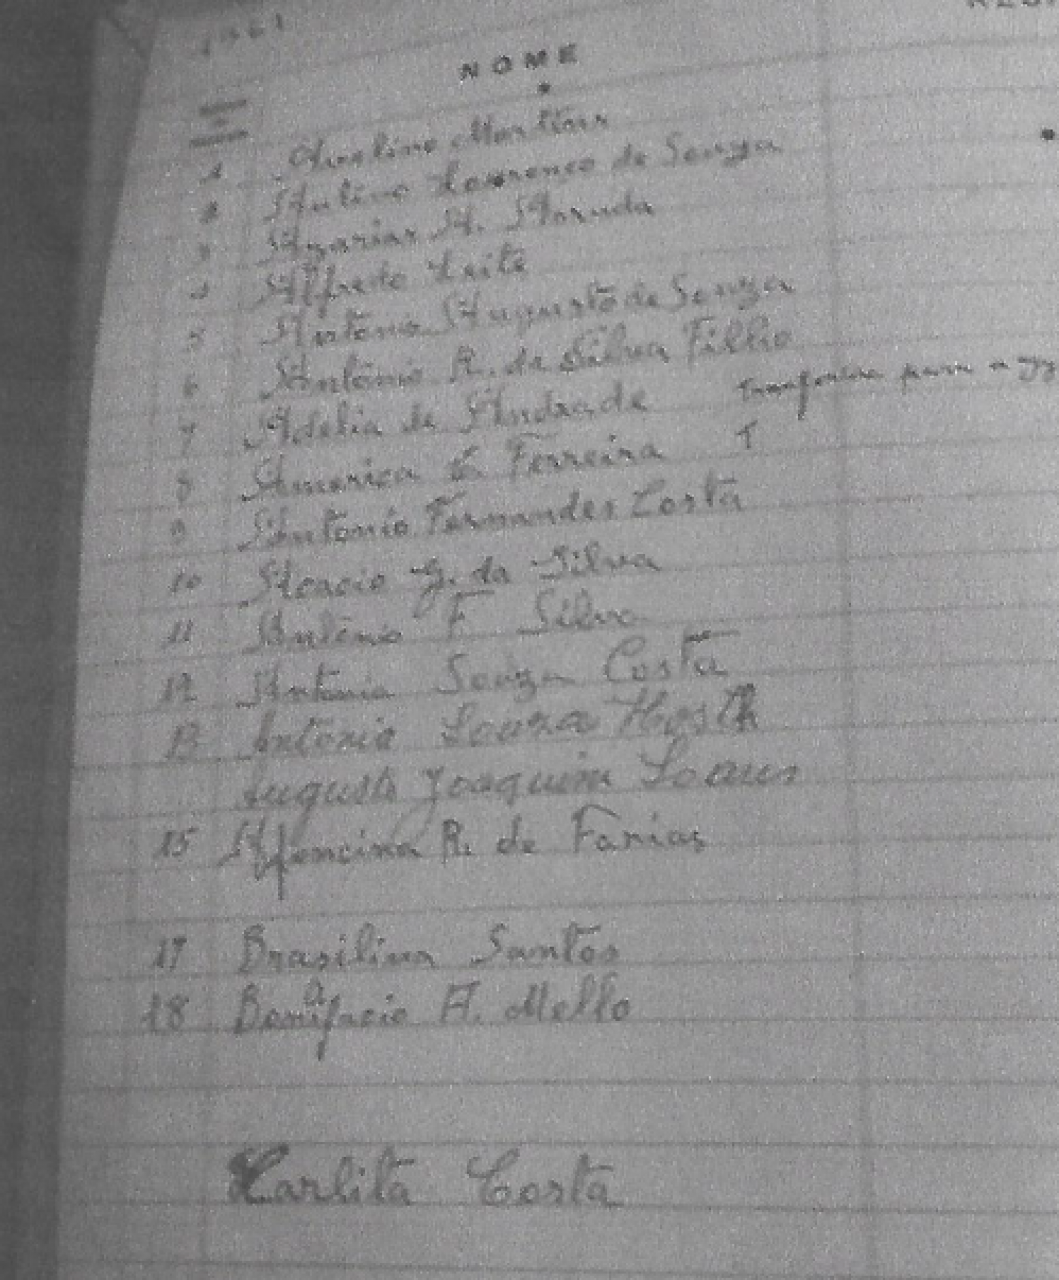 1961
NOME
1 Avelino Martins
2 Avelino Lourenço de Souza
3 Azarias A. Arruda
4 Alfredo Leite
5 Antonio Augusto de Souza
6 Antônio R. da Silva Filho
7 Adelia de Andrade para a
8 America C. Ferreira T
9 Antonio Fernandes Costa
10 Acacio G. da Silva
11 Antônio F. Silva
12 Antonia Souza Costa
13 Antonia Souza
Augusto Joaquim
15 R. de Farias
17 Brasilina Santos
18 Bonifacio A. Mello
Carlita Costa